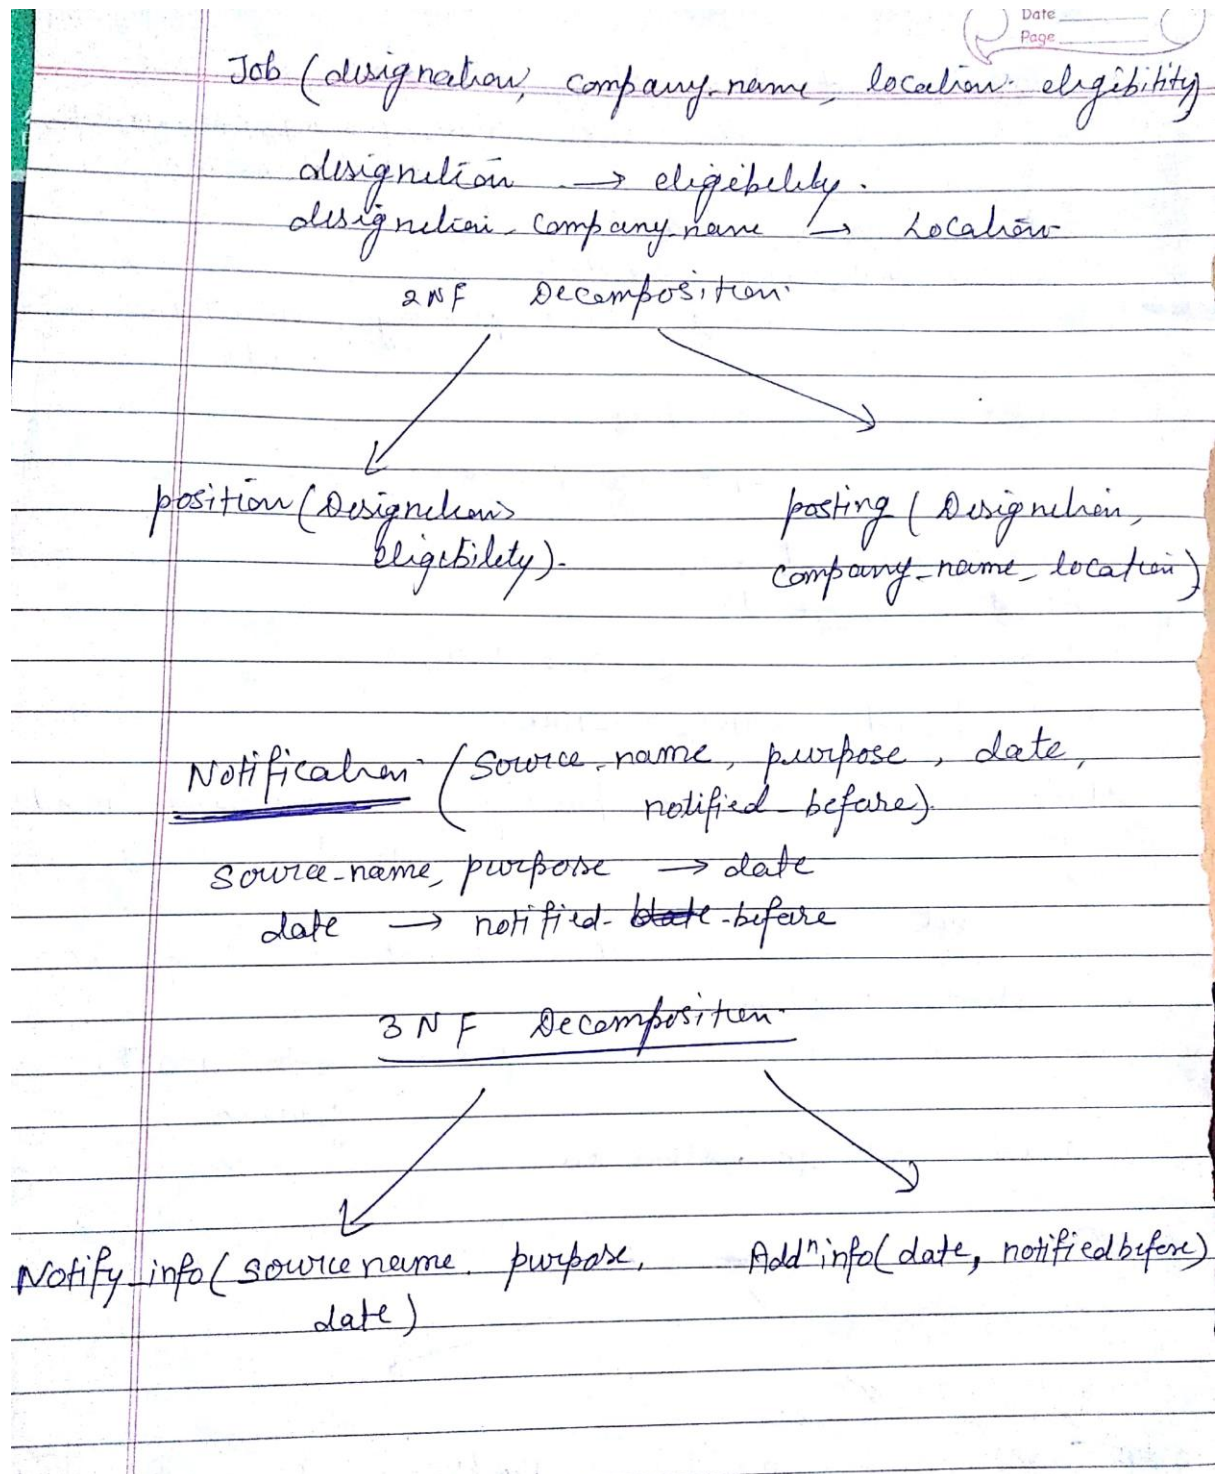 Date
Page
Job (designation, company_name, location. eligibility)
designation → eligibility.
designation, company_name → Location
2NF Decomposition.
position (Designation, posting (Designation,
eligibility). company_name, location)
Notification (Source_name, purpose, date,
notified_before).
Source_name, purpose → date
date → notified-before
3NF Decomposition.
Notify_info (source name, purpose, Addⁿ info (date, notified before)
date)